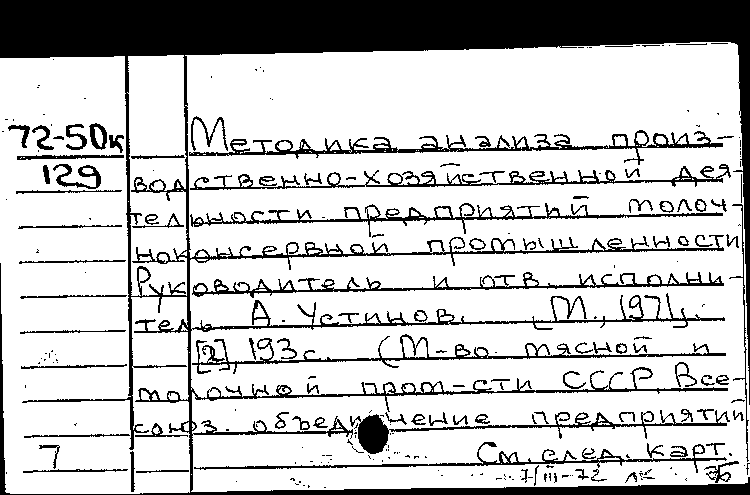 72-50к Методика анализа произ-
129 водственно-хозяйственной дея-
тельности предприятий молоч-
ноконсервной промышленности
Руководитель и отв. исполни-
тель А. Устинов. [М., 1971].
[2], 193 с. (М-во мясной и
молочной пром-сти СССР. Все-
союз. объединение предприятий
7 См. след. карт.
7/III-72 лк